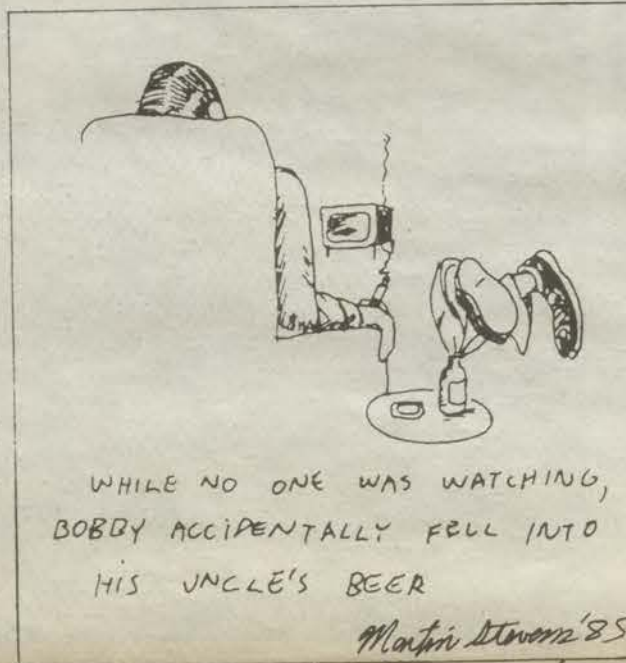 WHILE NO ONE WAS WATCHING,
BOBBY ACCIDENTALLY FELL INTO
HIS UNCLE'S BEER
Martin Stevens '85